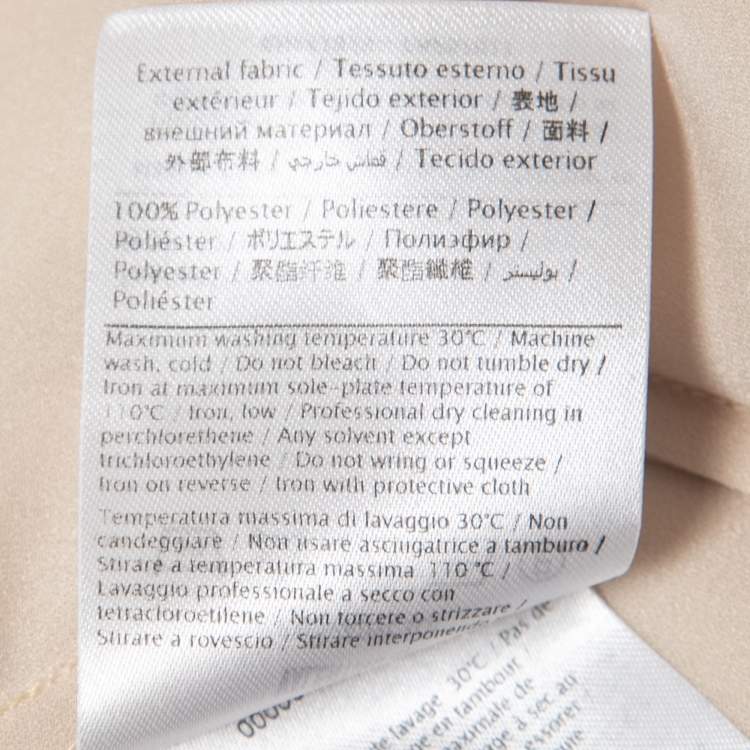 External fabric / Tessuto esterno / Tissu
extérieur / Tejido exterior / 表地 /
внешний материал / Oberstoff / 面料 /
外部布料 / قماش خارجي / Tecido exterior
100% Polyester / Poliestere / Polyester /
Poliéster / ポリエステル / Полиэфир /
Polyester / 聚酯纤维 / 聚酯纖維 / بوليستر /
Poliéster
Maximum washing temperature 30°C / Machine
wash, cold / Do not bleach / Do not tumble dry /
Iron at maximum sole-plate temperature of
110°C / Iron, low / Professional dry cleaning in
perchlorethene / Any solvent except
trichloroethylene / Do not wring or squeeze /
Iron on reverse / Iron with protective cloth
Temperatura massima di lavaggio 30°C / Non
candeggiare / Non usare asciugatrice a tamburo /
Stirare a temperatura massima 110°C /
Lavaggio professionale a secco con
tetracloroetilene / Non torcere o strizzare /
Stirare a rovescio / Stirare interponendo
lavage 30°C / Pas de
en tambour /
maximale de
à sec au